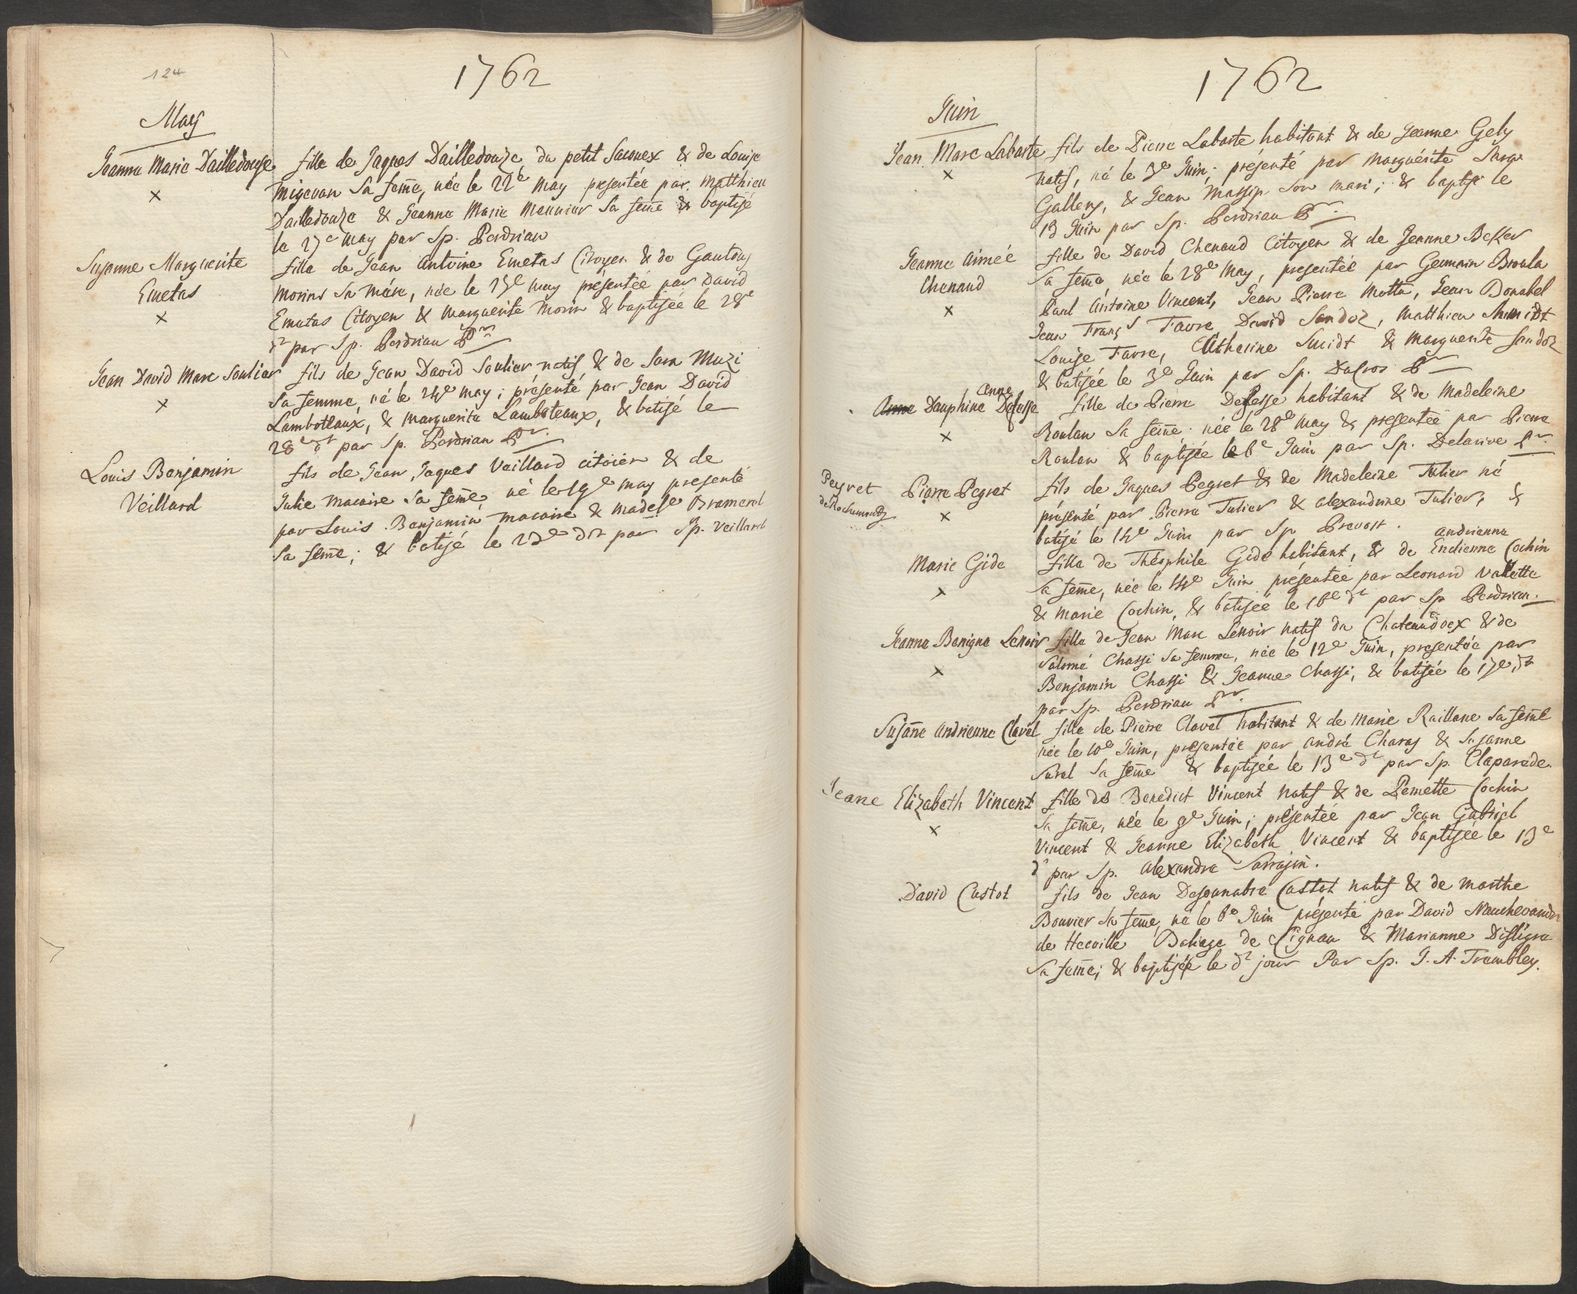 124
1762
May
Jeanne Marie Dailledouze
fille de Jaques Dailledouze du petit Saconex & de Louise
Migevan sa feme, née le 22e may presentée par Matthieu
Dailledouze & Jeanne Marie Meunier sa feme & baptisé
le 27e may par Sp. Perdriau
Suzanne Marguerite
Emetas
fille de Jean Antoine Emetas Citoyen & de Gautou
Morins sa mere, née le 25e may présentée par David
Emetas Citoyen & Marguerite Morin & baptisée le 28e
dt par Sp. Perdriau Pr
Jean David Marc Soulier
fils de Jean David Soulier natif & de Sara Muzi
sa femme, né le 24e may; présenté par Jean David
Lamboteaux, & Marguerite Lamboteaux, & batisé le
28e dt par Sp. Perdriau Pr
Louis Benjamin
Veillard
fils de Jean Jaques Veillard citoien & de
Julie Macaire sa feme, né le 19e may presenté
par Louis Benjamin Macaire & Madele Bramerel
sa feme; & batisé le 23e dt par Sp. Veillard
1762
Juin
Jean Marc Labarte
fils de Pierre Labarte habitant & de Jeanne Gely
natif, né le 3e Juin; présenté par Marguérite
Gallery, & Jean Massip son mari; & baptisé le
13 Juin par Sp. Perdriau Pr.
Jeanne Aimée
Chenaud
fille de David Chenaud Citoyen & de Jeanne Beker
sa feme, née le 28e May, presentée par Germain Broula
Paul Antoine Vincent, Jean Pierre Motta, Jean Bonabel
Jean Frans Favre, David Sandoz, Matthieu Smidt
Louise Favre, Catherine Smidt & Marguerite Sandoz
& batisée le 3e Juin par Sp. Dufros Pr
Anne
Anne Dauphine Defesse
fille de Pierre Defesse habitant & de Madeleine
Roulan sa feme née le 28e May & presentée par Pierre
Roulan & baptisée le 6e Juin par Sp. Delarive Pr.
Peyret
de Rochemont
Pierre Peyret
fils de Jaques Peyret & de Madeleine Tulier né
présenté par Pierre Tulier & Alexandrine Tulier, &
batisé le 14e Juin par Sp. Prevost.
Marie Gide
andrienne
fille de Théophile Gide habitant, & de Endienne Cochin
sa feme, née le 14e Juin présentée par Leonard Valette
& Marie Cochin, & batisée le 16e dt par Sp Perdriau.
Jeanne Benigne Lenoir
fille de Jean Marc Lenoir natif du Chateaudoex & de
Salomé Chassi sa femme, née le 12e Juin, presentée par
Benjamin Chassi & Jeanne Chassi, & batisée le 17e dt
par Sp. Perdriau Pr.
Susane Andrienne Clavel
fille de Pierre Clavel habitant & de Marie Raillane sa feme
née le 10e Juin, presentée par André Charas & Susanne
Surel sa feme & baptisée le 13e dt par Sp. Claparede
Jeane Elizabeth Vincent
fille de Benedict Vincent natif & de Pernette Cochin
sa feme, née le 9e Juin; présentée par Jean Gabriel
Vincent & Jeanne Elizabeth Vincent & baptisée le 13e
dt par Sp. Alexandre Sarrasin.
David Castot
fils de Jean Desgonabre Castot natif & de Marthe
Bouvier sa feme, né le 6e Juin présenté par David
de Herville Baliage de & Marianne
sa feme; & baptisé le dt jour Par Sp. J. A. Trembley.